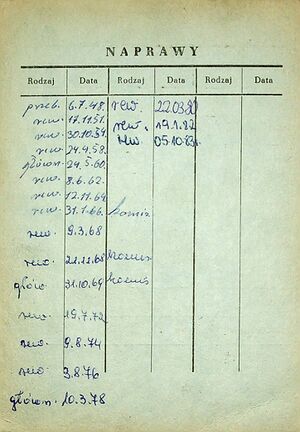 NAPRAWY
Rodzaj Data Rodzaj Data Rodzaj Data
przeb. 6.7.48. rew. 22.03.80
rew. 17.11.51. rew. 19.1.82
rew. 30.10.54. rew. 05.10.83.
rew. 24.9.58.
główn. 24.5.60.
rew. 8.6.62.
rew. 12.11.64
rew. 31.1.66.
rew. 9.3.68
rew. 21.11.68
główn. 31.10.69
rew. 19.7.72
rew. 9.8.74
rew. 3.8.76
główn. 10.3.78